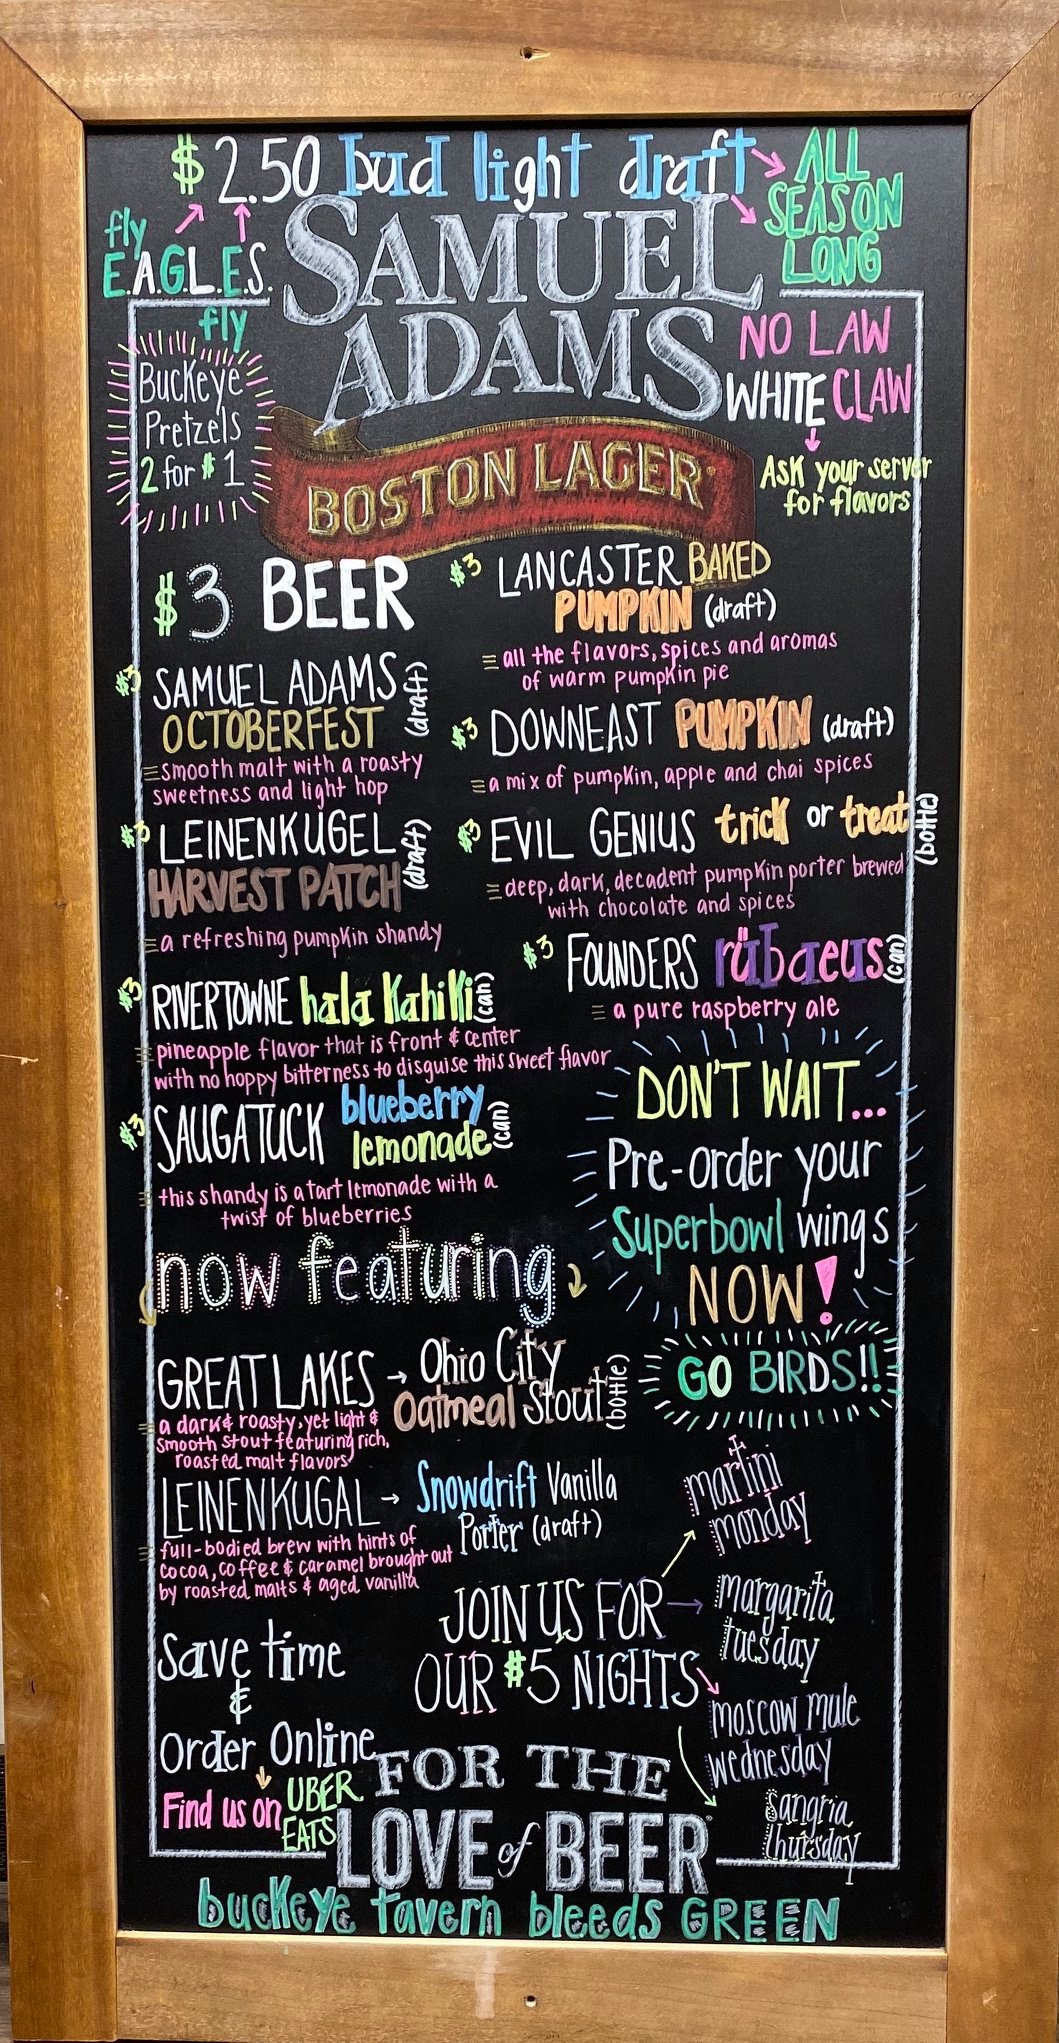 $ 2.50 bud light draft
ALL
SEASON
LONG
fly
E.A.G.L.E.S.
fly
SAMUEL
ADAMS
BOSTON LAGER
Buckeye
Pretzels
2 for $1
NO LAW
WHITE CLAW
Ask your server
for flavors
$3 BEER
$3 SAMUEL ADAMS
OCTOBERFEST (draft)
smooth malt with a roasty
sweetness and light hop
$3 LEINENKUGEL
HARVEST PATCH (draft)
a refreshing pumpkin shandy
$3 RIVERTOWNE hala Kahiki (can)
pineapple flavor that is front & center
with no hoppy bitterness to disguise this sweet flavor
$3 SAUGATUCK blueberry
lemonade (can)
this shandy is a tart lemonade with a
twist of blueberries
$3 LANCASTER BAKED
PUMPKIN (draft)
all the flavors, spices and aromas
of warm pumpkin pie
$3 DOWNEAST PUMPKIN (draft)
a mix of pumpkin, apple and chai spices
$3 EVIL GENIUS trick or treat (bottle)
deep, dark, decadent pumpkin porter brewed
with chocolate and spices
$3 FOUNDERS rübaeus (can)
a pure raspberry ale
DON'T WAIT...
Pre-order your
Superbowl wings
NOW!
GO BIRDS!!
now featuring
GREAT LAKES → Ohio City
Oatmeal Stout (bottle)
a dark & roasty, yet light &
smooth stout featuring rich,
roasted malt flavors
LEINENKUGAL → Snowdrift Vanilla
Porter (draft)
full-bodied brew with hints of
cocoa, coffee & caramel brought out
by roasted malts & aged vanilla
JOIN US FOR
OUR $5 NIGHTS
martini
monday
margarita
tuesday
moscow mule
wednesday
sangria
thursday
Save time
&
Order Online
Find us on UBER
EATS
FOR THE
LOVE of BEER
buckeye tavern bleeds GREEN